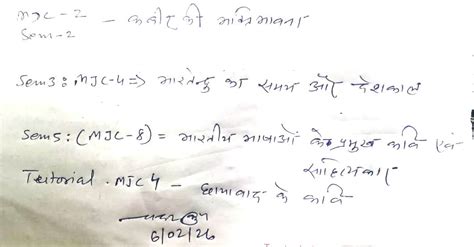 MJC-2 - कबीर की भक्ति भावना
Sem-2
Sem3: MJC-4 => भारतेन्दु का समय और देशकाल
Sem5: (MJC-8) = भारतीय भाषाओं के प्रमुख कवि एवं
साहित्यकार
Tutorial. MJC4 - छायावाद के कवि
6/02/26